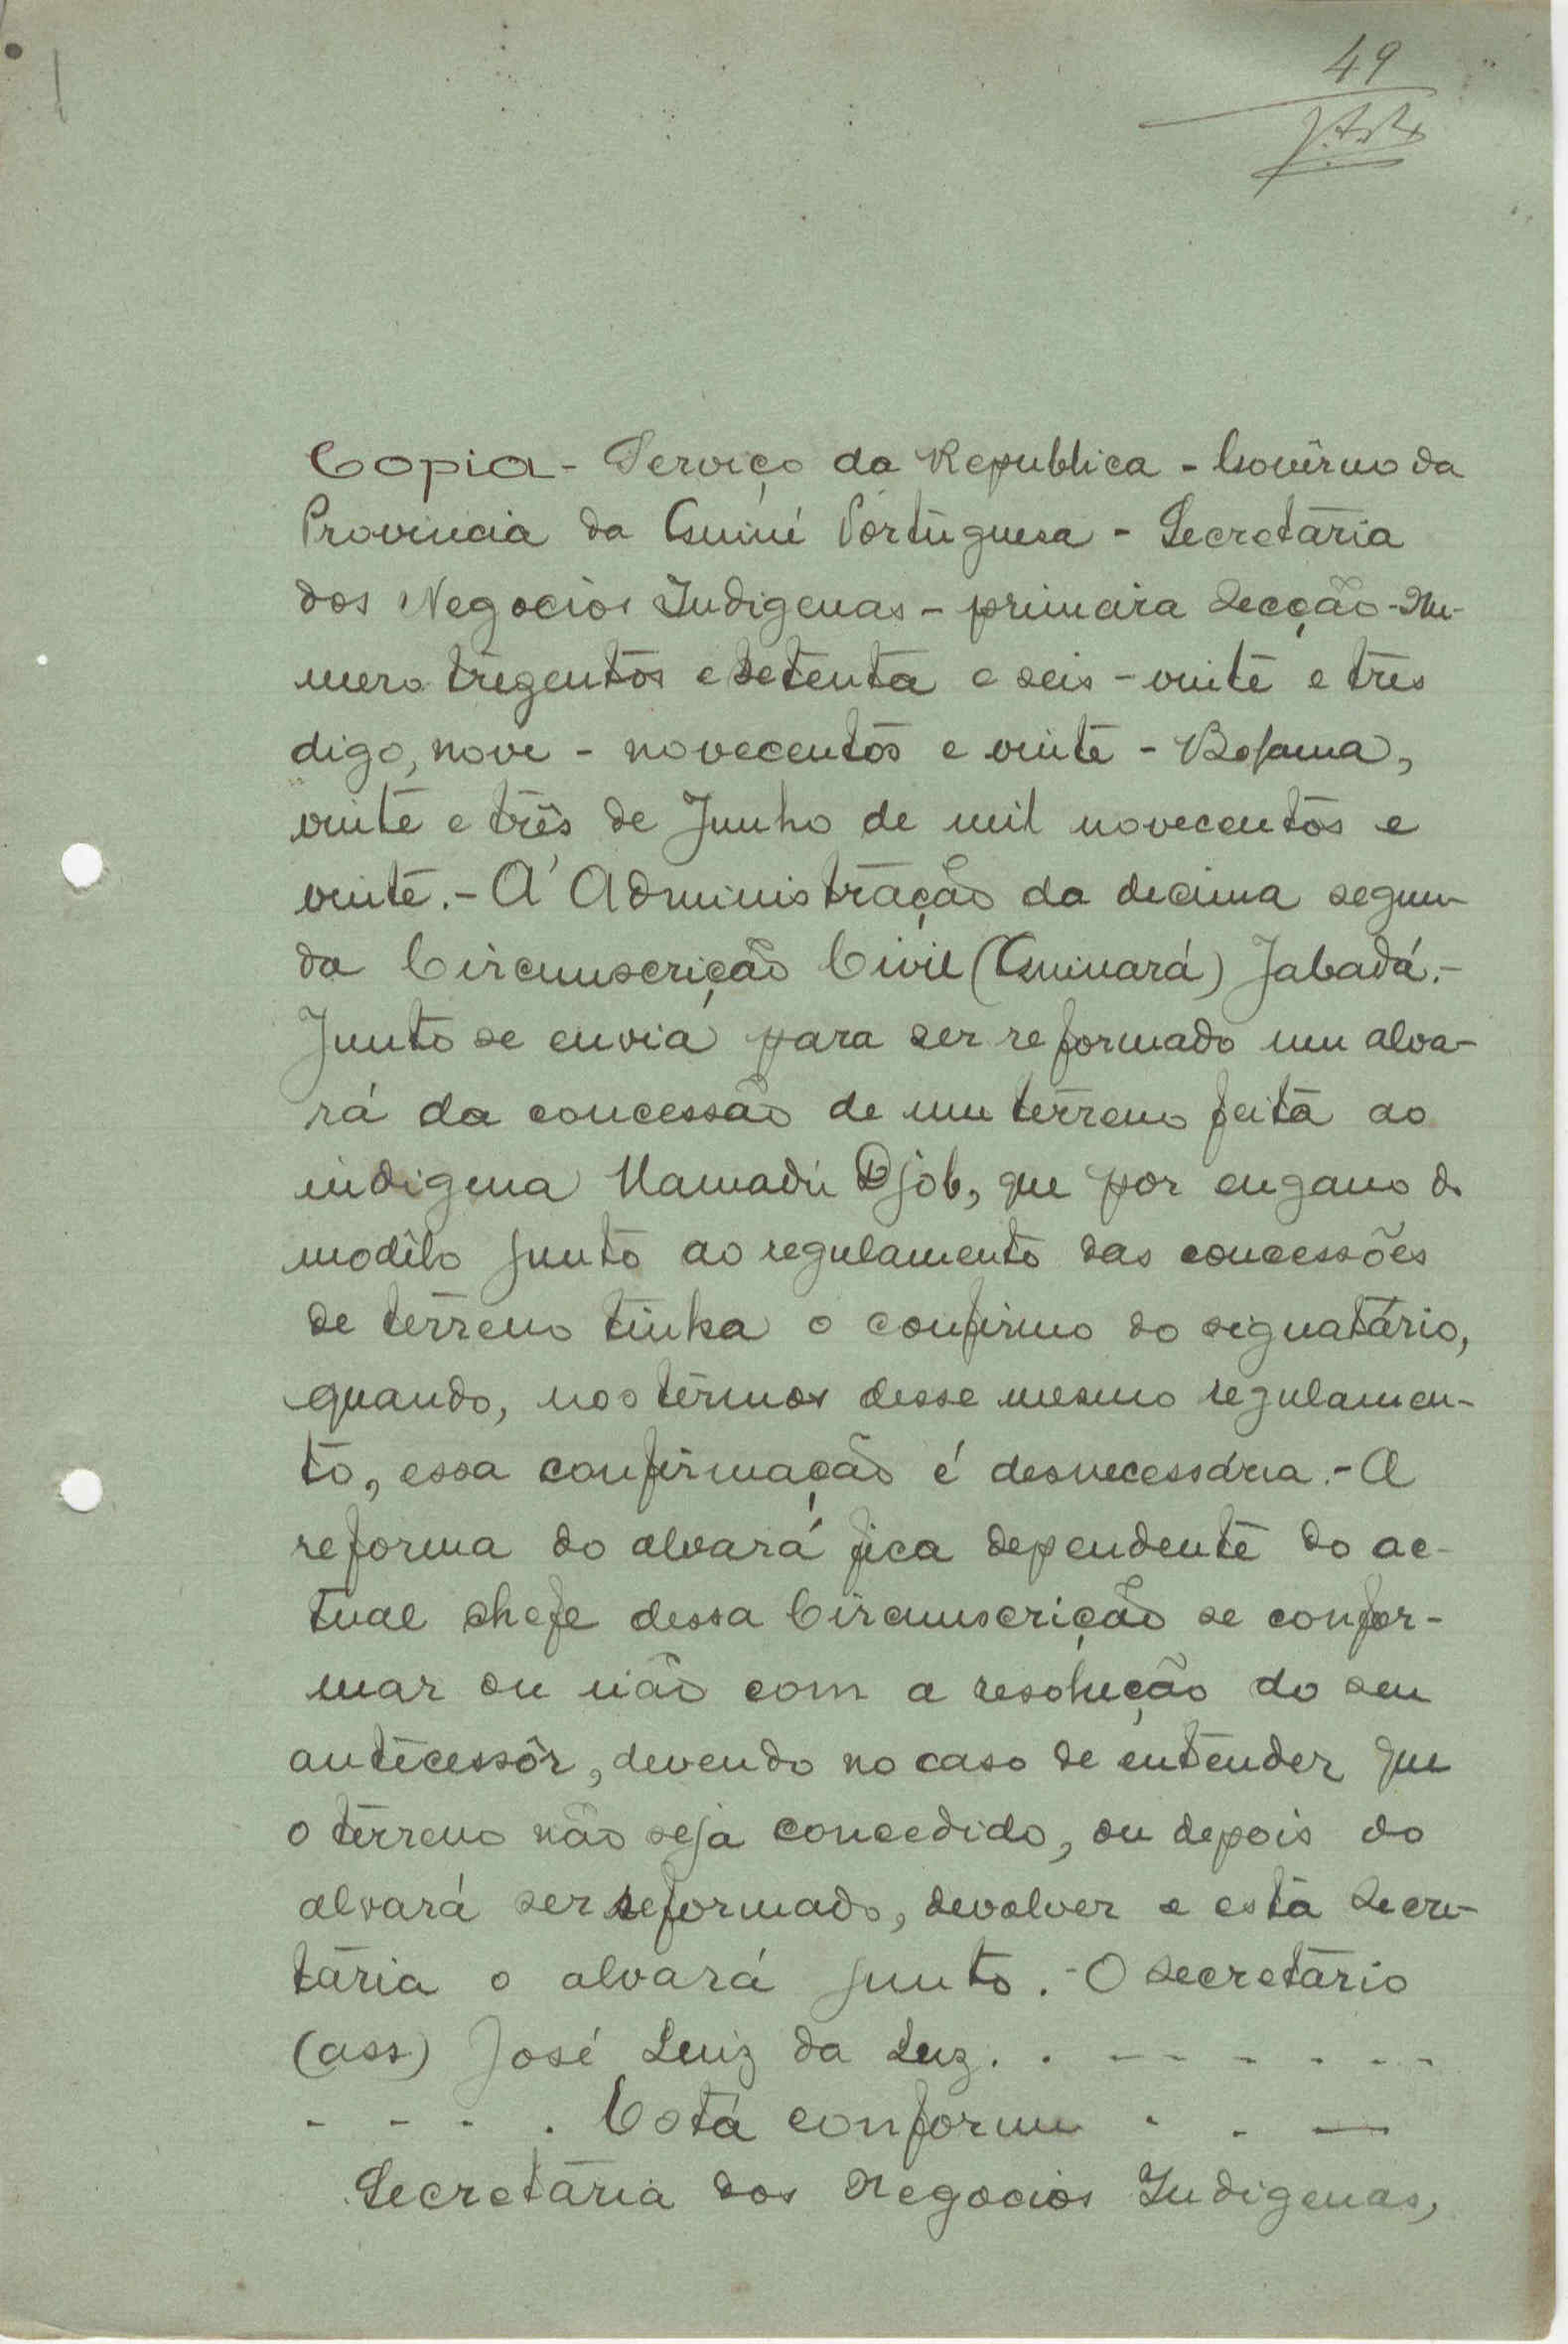 49
Copia - Serviço da Republica - Govêrno da
Provincia da Guiné Portuguesa - Secretaria
dos Negocios Indigenas - primeira Secção - Nu-
mero trezentos e setenta e seis - vinte e três
digo, nove - novecentos e vinte - Bolama,
vinte e três de Junho de mil novecentos e
vinte. - Á Administração da decima segun-
da Circunscrição Civil (Guinará) Jabadá. -
Junto se envia para ser reformado um alva-
rá da concessão de um terreno feita ao
indigena Mamadú Djob, que por engano do
modêlo junto ao regulamento das concessões
de terreno tinha o confirmo do signatário,
quando, nos têrmos desse mesmo regulamen-
to, essa confirmação é desnecessária. - A
reforma do alvará fica dependente do ac-
tual chefe dessa Circunscrição se confor-
mar ou não com a resolução do seu
antecessôr, devendo no caso de entender que
o terreno não seja concedido, ou depois do
alvará ser reformado, devolver a esta Secre-
taria o alvará junto. - O secretario
(ass) José Luiz da Luz. . - - - - - -
- - - . Está conforme - . —
Secretaria dos Negocios Indigenas,